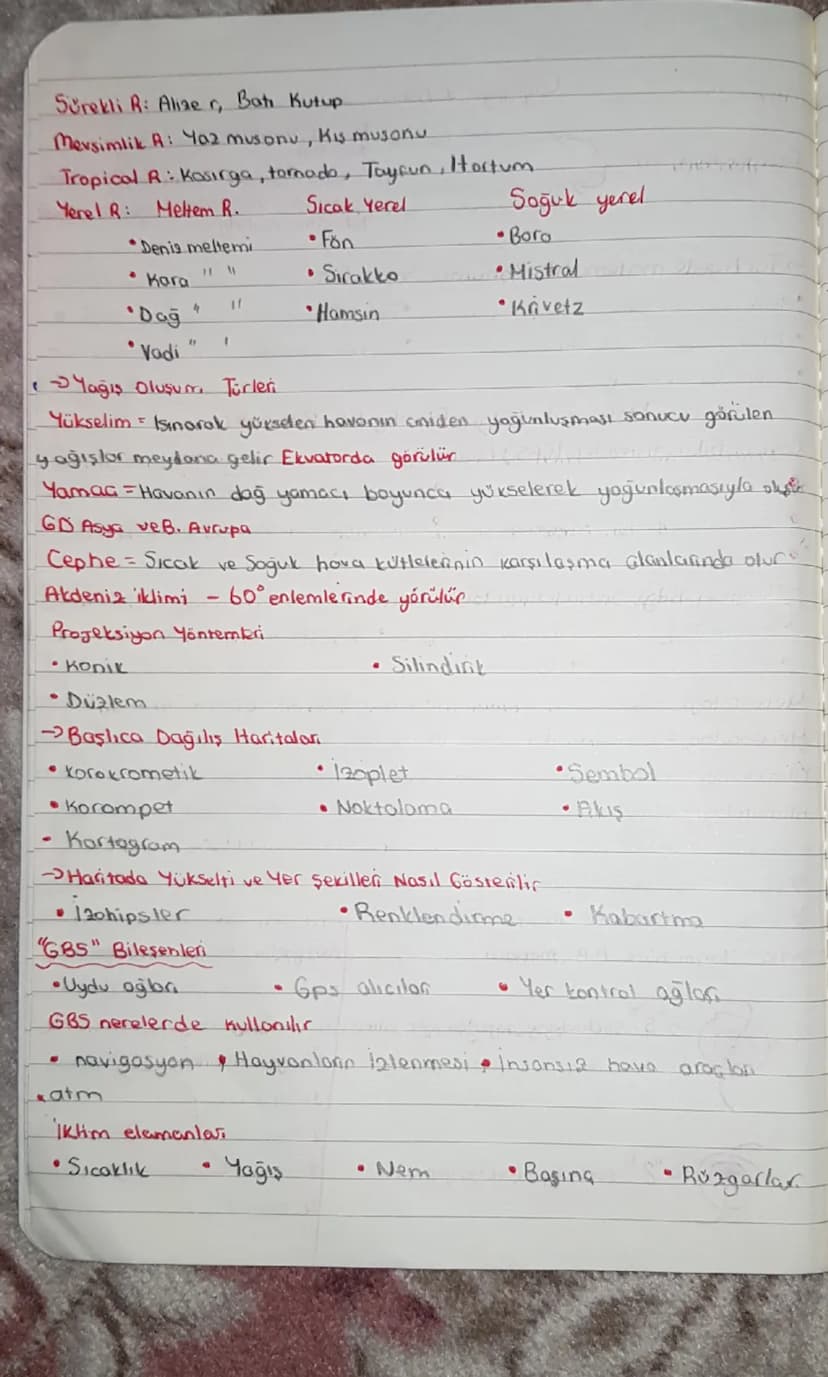 Sürekli R: Alize r, Batı Kutup
Mevsimlik R: Yaz musonu, Kış musonu
Tropical R: Kasırga, tornado, Tayfun, Hortum
Yerel R: Meltem R. Sıcak Yerel Soğuk yerel
• Deniz meltemi • Fön • Bora
• Kara " " • Sırakko • Mistral
• Dağ " " • Hamsin • Krivetz
• Vadi " '
→ Yağış Oluşum Türleri
Yükselim = Isınarak yükselen havanın aniden yoğunluşması sonucu görülen
yağışlar meydana gelir Ekvatorda görülür
Yamaç = Havanın dağ yamacı boyunca yükselerek yoğunlaşmasıyla oluşur
GD Asya ve B. Avrupa
Cephe = Sıcak ve Soğuk hava kütlelerinin karşılaşma alanlarında olur
Akdeniz iklimi - 60° enlemlerinde görülür
Projeksiyon Yöntemleri
• Konik • Silindirik
• Düzlem
→ Başlıca Dağılış Haritaları
• Korokrometik • İzoplet • Sembol
• Korompet • Noktalama • Akış
- Kartogram
→ Haritada Yükselti ve Yer Şekilleri Nasıl Gösterilir
• İzohipsler • Renklendirme • Kabartma
"GBS" Bileşenleri
• Uydu ağları • Gps alıcıları • Yer kontrol ağları
GBS nerelerde kullanılır
• navigasyon • Hayvanların İzlenmesi • İnsansız hava araçları
• atm
İklim elemanları
• Sıcaklık • Yağış • Nem • Basınç • Rüzgarlar